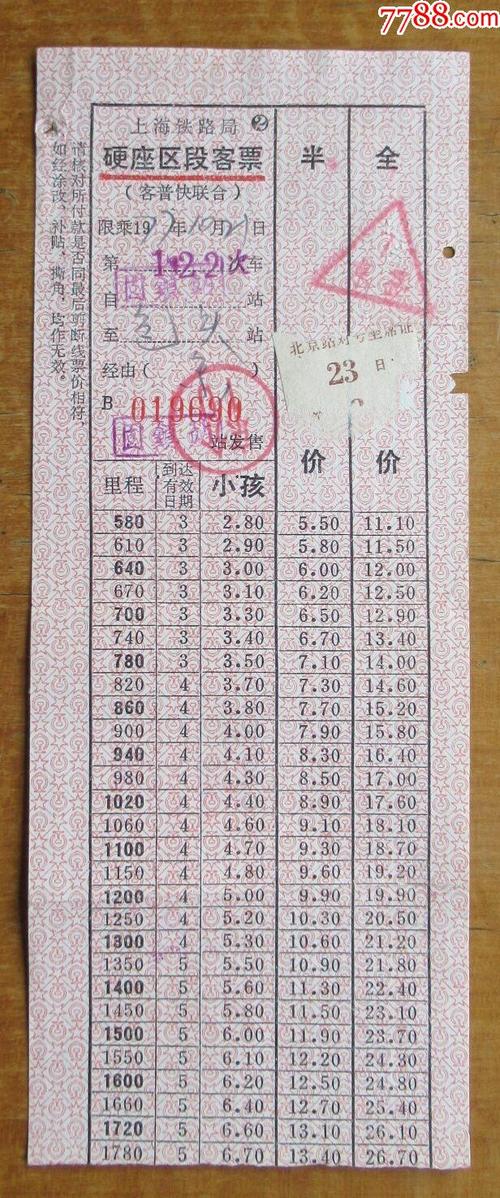 7788.com
上海铁路局 ②
硬座区段客票
(客普快联合)
限乘19 年10月21日
第122次车
自 站
至包头站
经由( )
B 019690
站发售
半价
全价
北京站对号坐席证
23日
请核对所付款是否同最后剪断线票价相符,
如经涂改、补贴、撕角,均作无效。
里程 到达有效日期 小孩
580 3 2.80 5.50 11.10
610 3 2.90 5.80 11.50
640 3 3.00 6.00 12.00
670 3 3.10 6.20 12.50
700 3 3.30 6.50 12.90
740 3 3.40 6.70 13.40
780 3 3.50 7.10 14.00
820 4 3.70 7.30 14.60
860 4 3.80 7.70 15.20
900 4 4.00 7.90 15.80
940 4 4.10 8.30 16.40
980 4 4.30 8.50 17.00
1020 4 4.40 8.90 17.60
1060 4 4.60 9.10 18.10
1100 4 4.70 9.30 18.70
1150 4 4.80 9.60 19.20
1200 4 5.00 9.90 19.90
1250 4 5.20 10.30 20.50
1300 4 5.30 10.60 21.20
1350 5 5.50 10.90 21.80
1400 5 5.60 11.30 22.40
1450 5 5.80 11.50 23.10
1500 5 6.00 11.90 23.70
1550 5 6.10 12.20 24.30
1600 5 6.20 12.50 24.80
1660 5 6.40 12.70 25.40
1720 5 6.60 13.10 26.10
1780 5 6.70 13.40 26.70